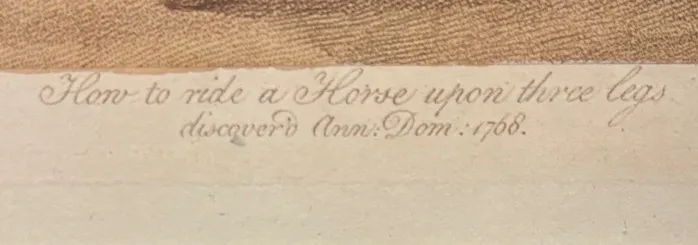 How to ride a Horse upon three legs
discover'd Ann: Dom: 1768.